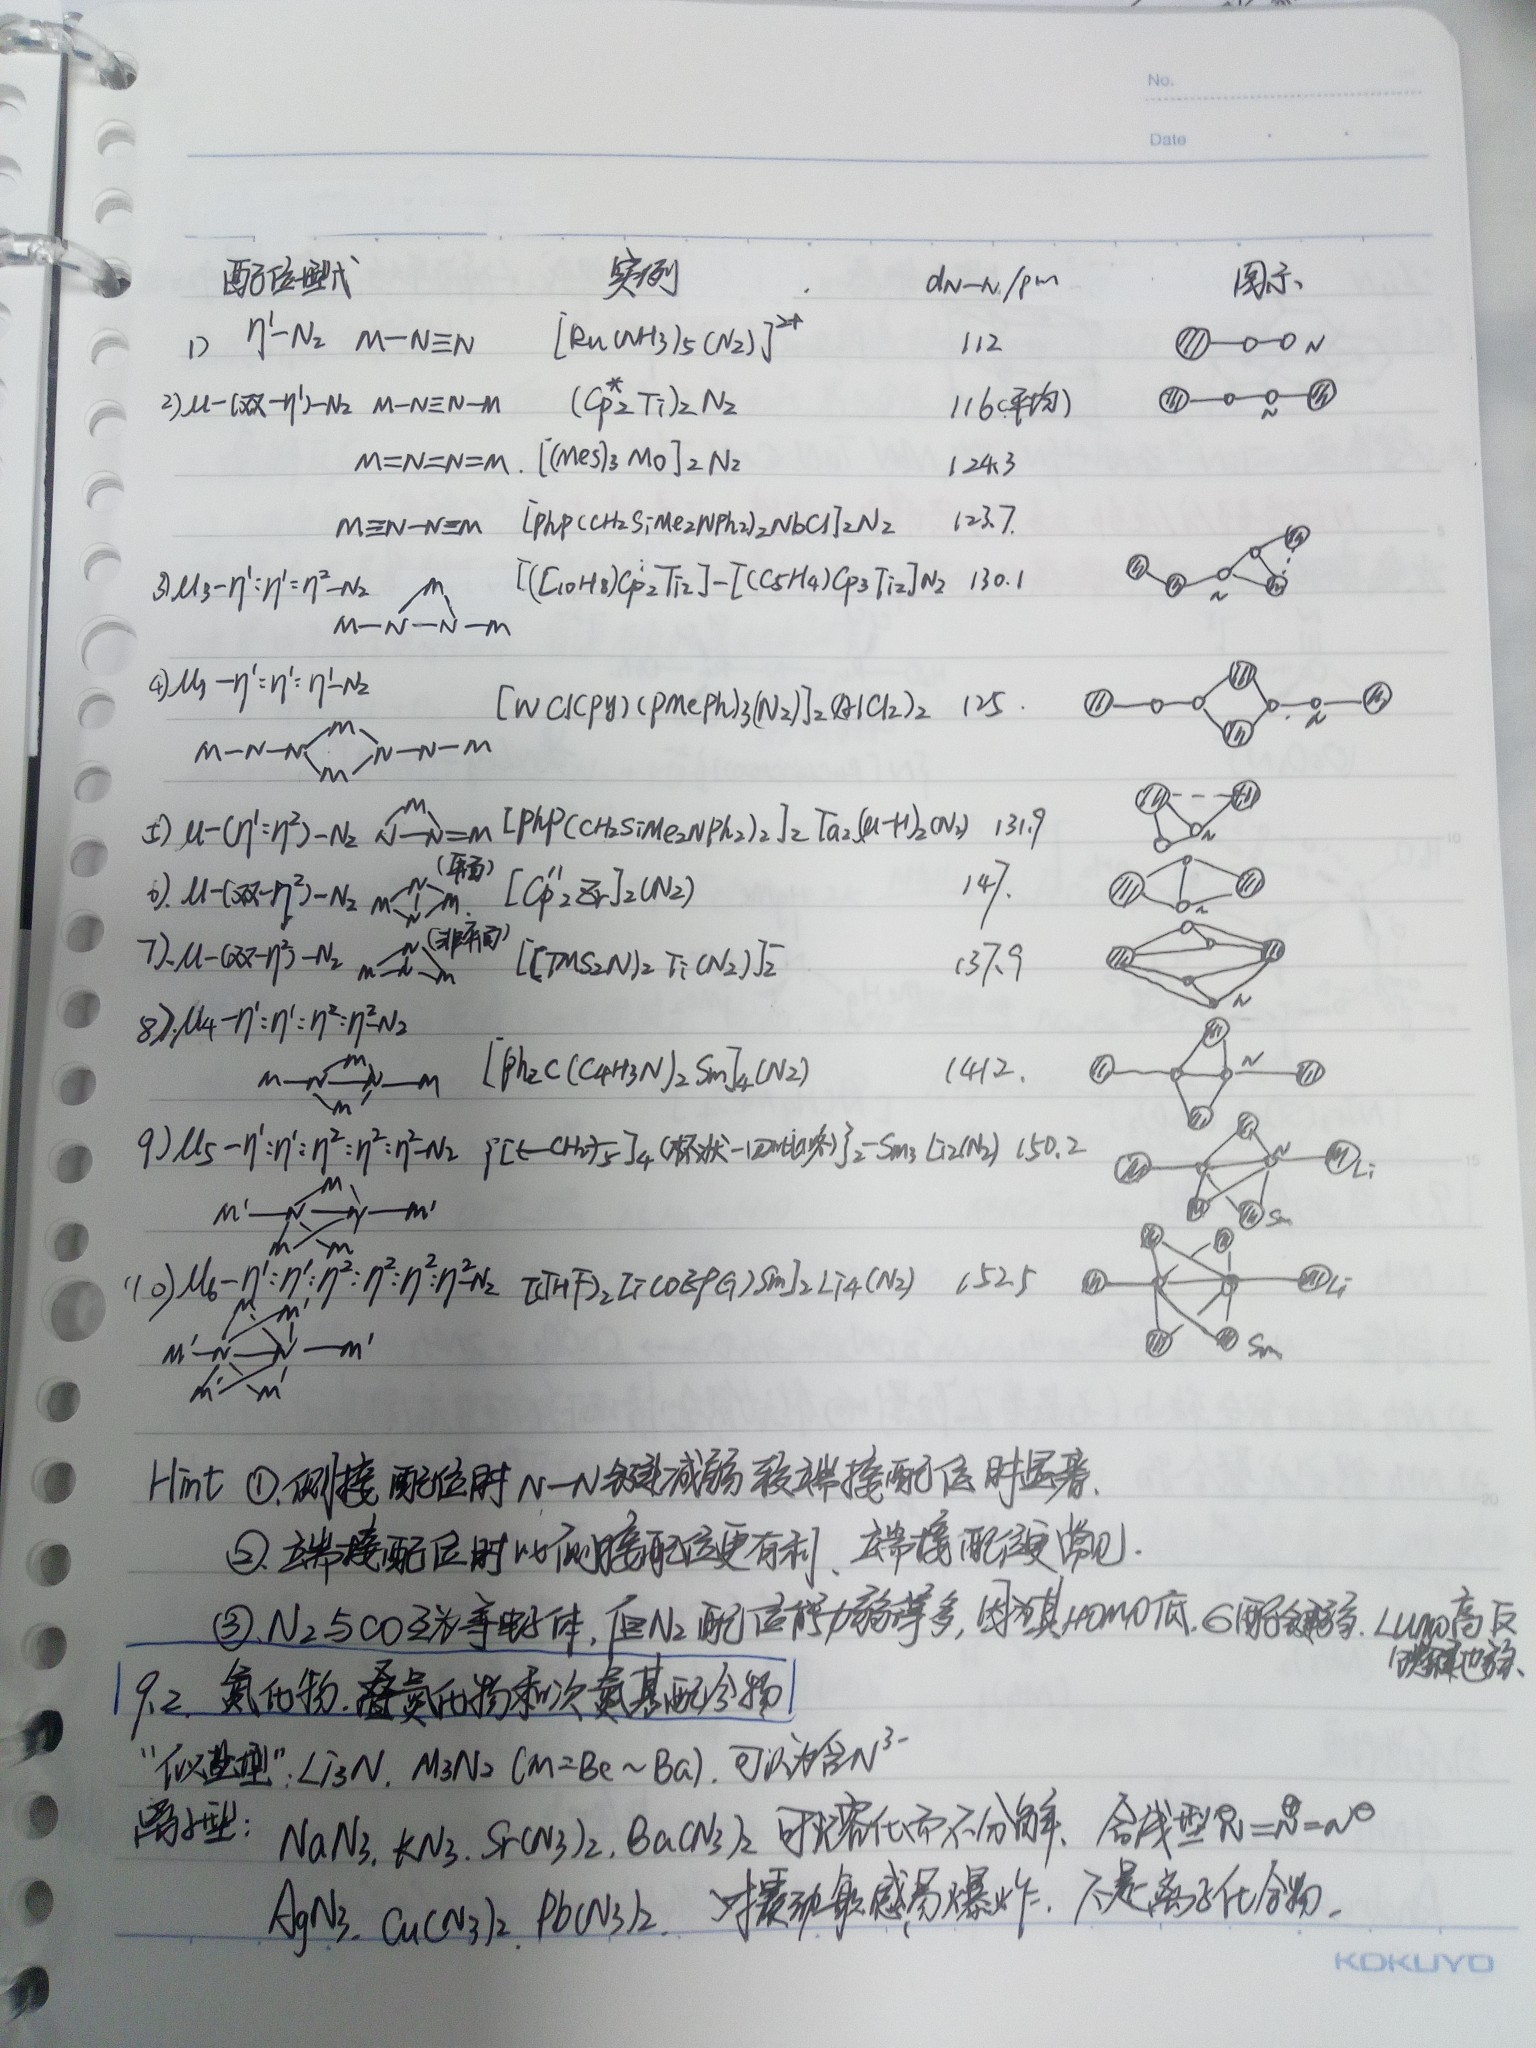 No.
Date
配位型式 实例 dN-N/pm 图示
1) η¹-N₂ M-N≡N [Ru(NH3)5(N2)]²⁺ 112 N
2) μ-(双-η¹)-N₂ M-N≡N-M (Cp*₂Ti)₂N₂ 116(平均) N
M=N=N=M. [(Mes)₃Mo]₂N₂ 124.3
M≡N-N≡M [PhP(CH2SiMe2NPh2)₂NbCl]₂N₂ 123.7
3) μ₃-η¹:η¹:η²-N₂ [(C10H8)Cp₂Ti2]-[(C5H4)Cp3Ti2]N2 130.1
M M-N-N-M N
4) μ₃-η¹:η¹:η¹-N₂ [WCl(py)(PMePh)₃(N₂)]₂(AlCl2)₂ 125.
M-N-N M M N-N-M N
5) μ-(η¹:η²)-N₂ M N-N=M [PhP(CH2SiMe2NPh2)₂]₂Ta₂(μ-H)₂(N₂) 131.9 N
6). μ-(双-η²)-N₂ M N N M (平面) [Cp″₂Zr]₂(N2) 147. N
7). μ-(双-η²)-N₂ M N N M (非平面) [[(TMS₂N)₂Ti(N2)]₂⁻ 137.9 N
8). μ₄-η¹:η¹:η²:η²-N₂
M-N-N-M M M [Ph₂C(C4H3N)₂Sm]₄(N2) 141.2. N
9) μ₅-η¹:η¹:η²:η²:η²-N₂ {[(-CH2)₅]₄ }₂-Sm₃Li2(N2) 150.2 N Li
M'-N-N-M' M M M Sm
10) μ₆-η¹:η¹:η²:η²:η²:η²-N₂ [(THF)₂Li(OEPG)Sm]₂Li₄(N2) 152.5 Li
M'-N-N-M' M M' M' M' Sm
Hint ①.侧接配位时N-N键减弱较端接配位时显著.
②.端接配位时比侧接配位更有利、端接配位更常见.
③.N₂与CO互为等电子体,但N₂配位能力弱得多,因为其HOMO低.σ配键弱. LUMO高反
馈键也弱.
9.2. 氮化物.叠氮化物和次氮基配合物
"似盐型": Li₃N. M₃N₂ (M=Be~Ba). 可认为含N³⁻
离子型: NaN₃. KN₃. Sr(N₃)₂. Ba(N₃)₂ 可熔化而不分解、含线型N=N=N
AgN₃. Cu(N₃)₂. Pb(N₃)₂. 对震动敏感易爆炸. 不是离子化合物.
KOKUYO